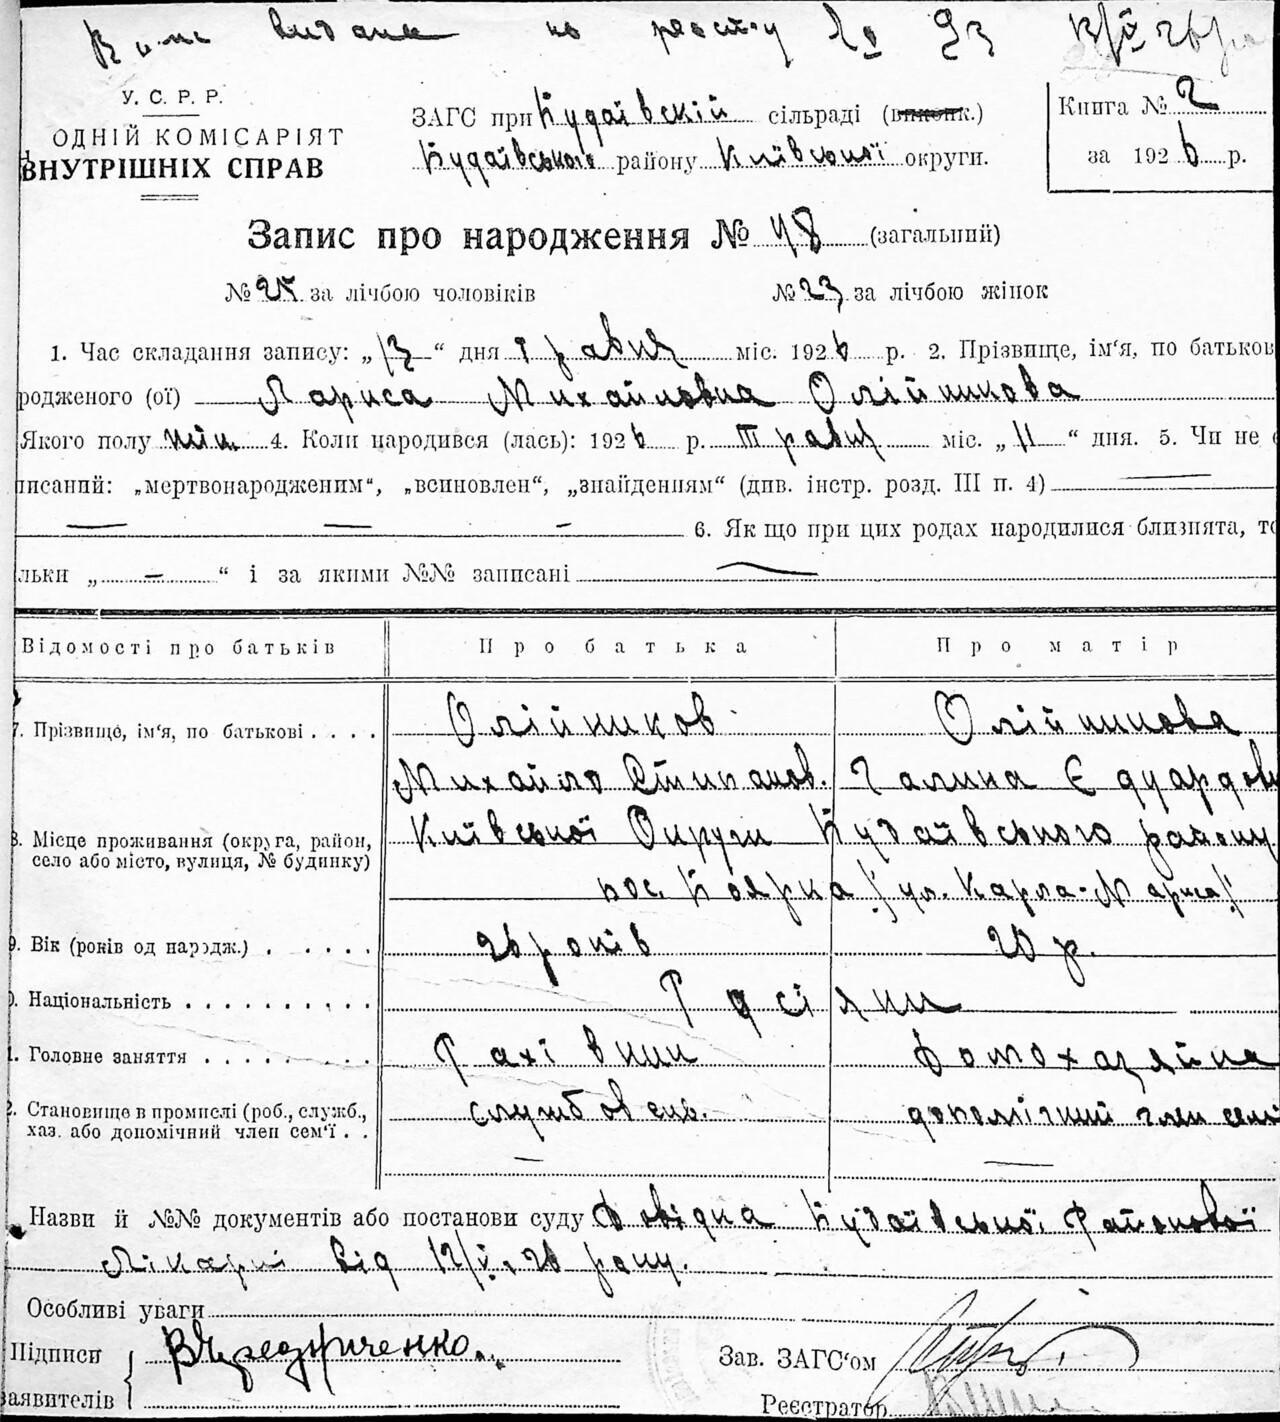 видана по реєстру № 93
У. С. Р. Р.
ОДНІЙ КОМІСАРІЯТ
ВНУТРІШНІХ СПРАВ
ЗАГС при Будаївскій сільраді (виконк.)
Будаївського району Київської округи.
Книга № 2
за 1926 р.
Запис про народження № 48 (загальний)
№ 25 за лічбою чоловіків № 23 за лічбою жінок
1. Час складання запису: „13“ дня травня міс. 1926 р. 2. Прізвище, ім‘я, по батькові
родженого (ої) Лариса Михайловна Олійникова
Якого полу жін. 4. Коли народився (лась): 1926 р. травня міс. „11“ дня. 5. Чи не є
писаний: „мертвонародженим“, „всиновлен“, „знайденням“ (див. інстр. розд. III п. 4) —
— — — 6. Як що при цих родах народилися близнята, то
льки „ — “ і за якими №№ записані —
Відомості про батьків Про батька Про матір
7. Прізвище, ім‘я, по батькові . . . . Олійников Олійникова
Михайло Степанов. Галина Єдуардовн
8. Місце проживання (округа, район, село або місто, вулиця, № будинку) Київської Округи Будаївського району
пос. Боярка /ул. Карла-Маркса/
9. Вік (років од нар‍одж.) . . . . . 26 років 20 р.
0. Національність . . . . . . . . . . Росіяни
1. Головне заняття . . . . . . . . Рахівник Домохазяйка
2. Становище в промислі (роб., служб., хаз. або допомічний член сем‘ї . . службовець. допомічний член семї
— —
Назви й №№ документів або постанови суду Довідка Будаївської Районової
Лікарні від 12/V. 26 року.
Особливі уваги
Підписи
заявителів
Зав. ЗАГС‘ом
Реєстратор